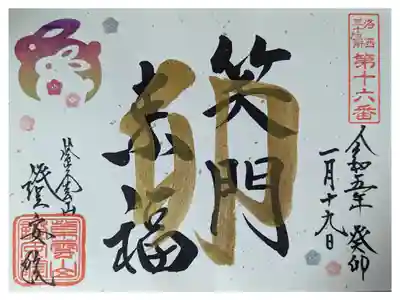 名西
三十三所
第十六番
令和五年 癸卯
一月十九日
卯
笑門
来福
證安院